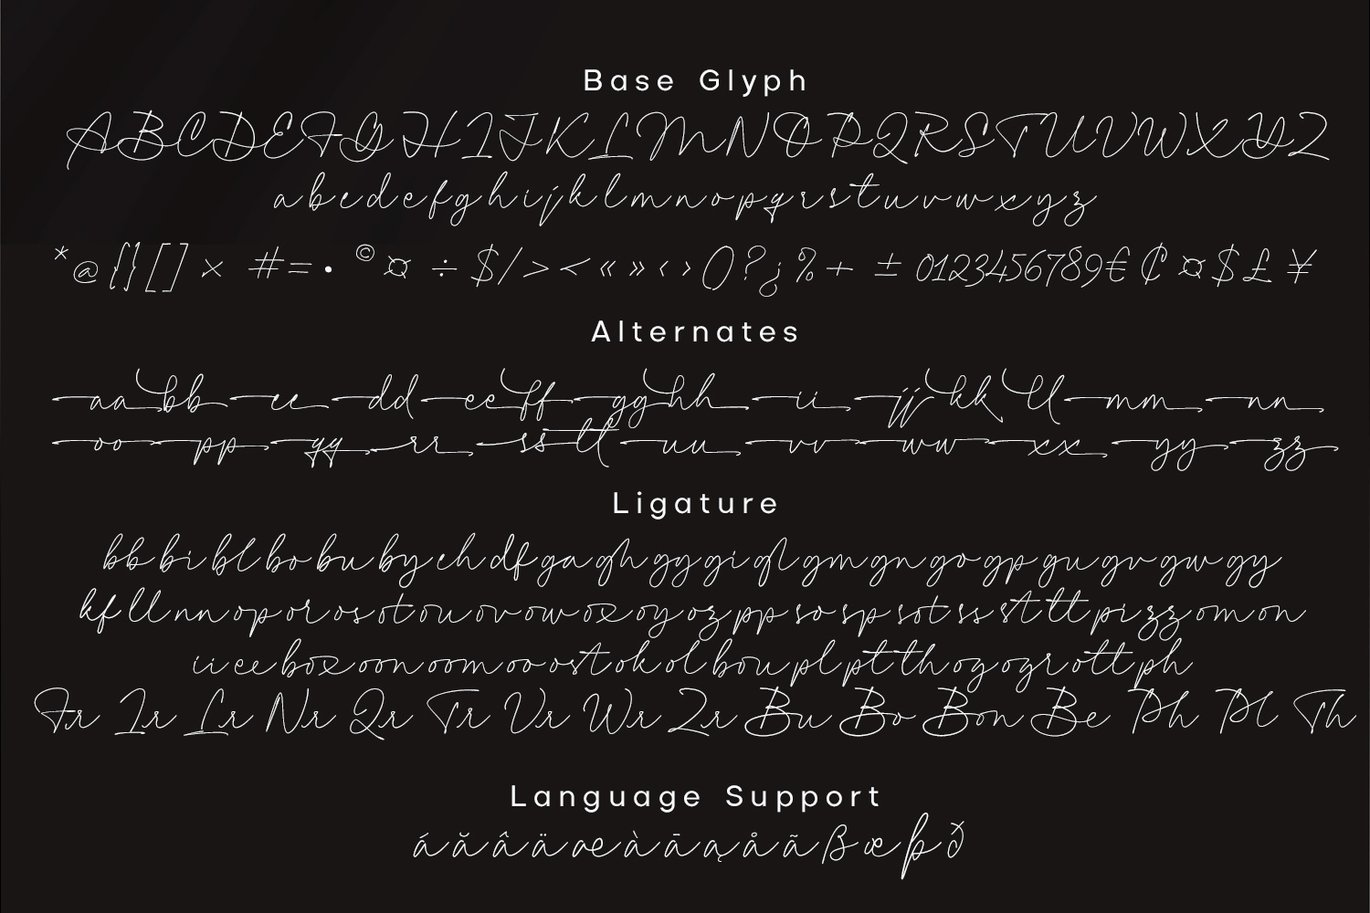 Base Glyph
ABCDEFGHIJKLMNOPQRSTUVWXYZ
abcdefghijklmnopqrstuvwxyz
*@{}[]× #=• ©¤ ÷ $/><«»‹›()?¿%+ ±0123456789€₵¤$£¥
Alternates
aa bb cc dd ee ff gg hh ii jj kk ll mm nn
oo pp qq rr ss tt uu vv ww xx yy zz
Ligature
bb bi bl bo bu by ch df ga gh gg gi gl gm gn go gp gu gv gw gy
kf ll nn op or os ot ou ov ow ox oy oz pp so sp sot ss st tt pi zz om on
ii ee box oon oom oo ost ok ol bou pl pt th og ogr ott ph
Fr Ir Lr Nr Qr Tr Vr Wr Zr Bu Bo Bon Be Ph Pl Th
Language Support
áăâäæàāąåãßœþð